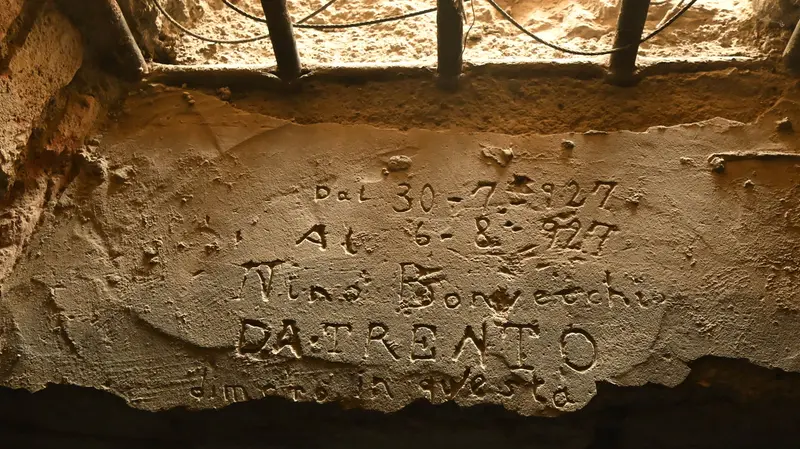 Dal 30-7-927
Al 6-8-927
Nino Bonvecchio
DA TRENTO
dimorò in questa